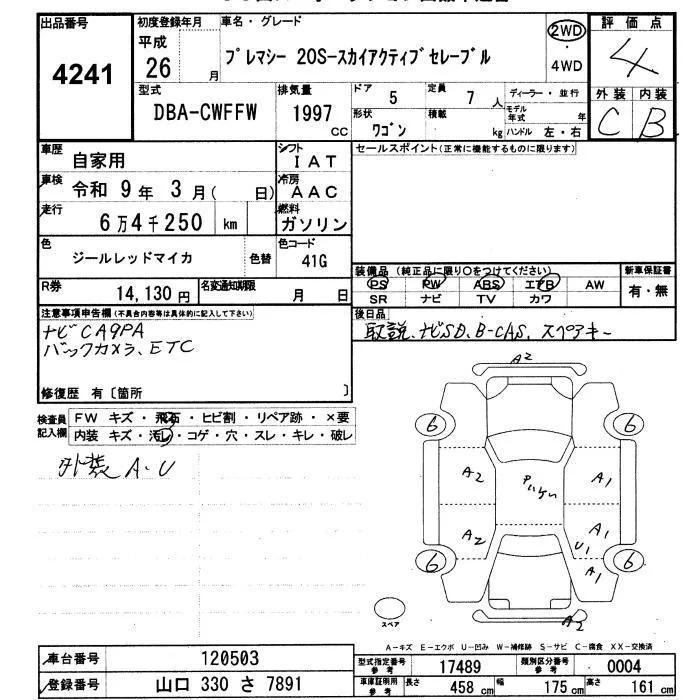 出品番号 4241
初度登録年月 平成 26 月
車名・グレード プレマシー 20S-スカイアクティブセレーブル
2WD
4WD
評価点 4
外装 C 内装 B
型式 DBA-CWFFW
排気量 1997 CC
ドア 5 定員 7 人
形状 ワゴン 積載 kg
ディーラー・並行
モデル年式 年
ハンドル 左・右
車歴 自家用
シフト IAT
セールスポイント(正常に機能するものに限ります)
車検 令和 9年 3月( 日)
冷房 AAC
走行 6万4千250 km
燃料 ガソリン
色 ジールレッドマイカ 色替
色コード 41G
装備品(純正品に限り○をつけてください)
PS PW ABS エアB AW
SR ナビ TV カワ
新車保証書 有・無
R券 14,130円
名変通知期限 月 日
注意事項申告欄(不具合内容等は具体的に記入して下さい)
ナビCA9PA
バックカメラ、ETC
修復歴 有〔箇所 〕
後日品
取説、ナビSD、B-CAS、スペアキー
検査員記入欄
FW キズ・飛石・ヒビ割・リペア跡・×要
内装 キズ・汚レ・コゲ・穴・スレ・キレ・破レ
外装 A・U
A2
6 6
A2 A1
A2 A1
U1
A1
6 6
A2
スペア
A-キズ E-エクボ U-凹み W-補修跡 S-サビ C-腐食 XX-交換済
車台番号 120503
登録番号 山口 330 さ 7891
型式指定番号 参考 17489
類別区分番号 参考 0004
車庫証明用 参考 長さ 458 cm 幅 175 cm 高さ 161 cm